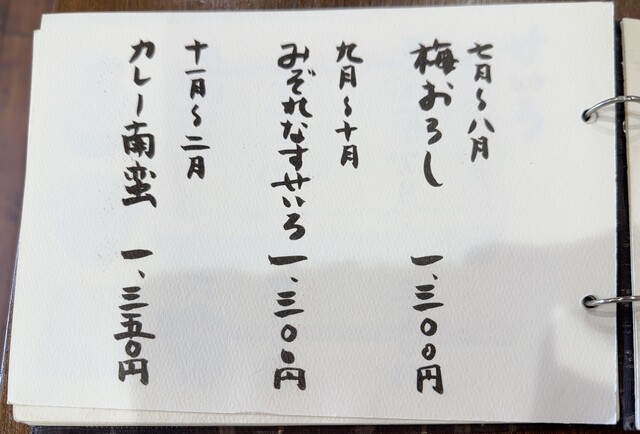 七月〜八月
梅おろし 一、三〇〇円
九月〜十月
みぞれなすせいろ 一、三〇〇円
十一月〜二月
カレー南蛮 一、三五〇円